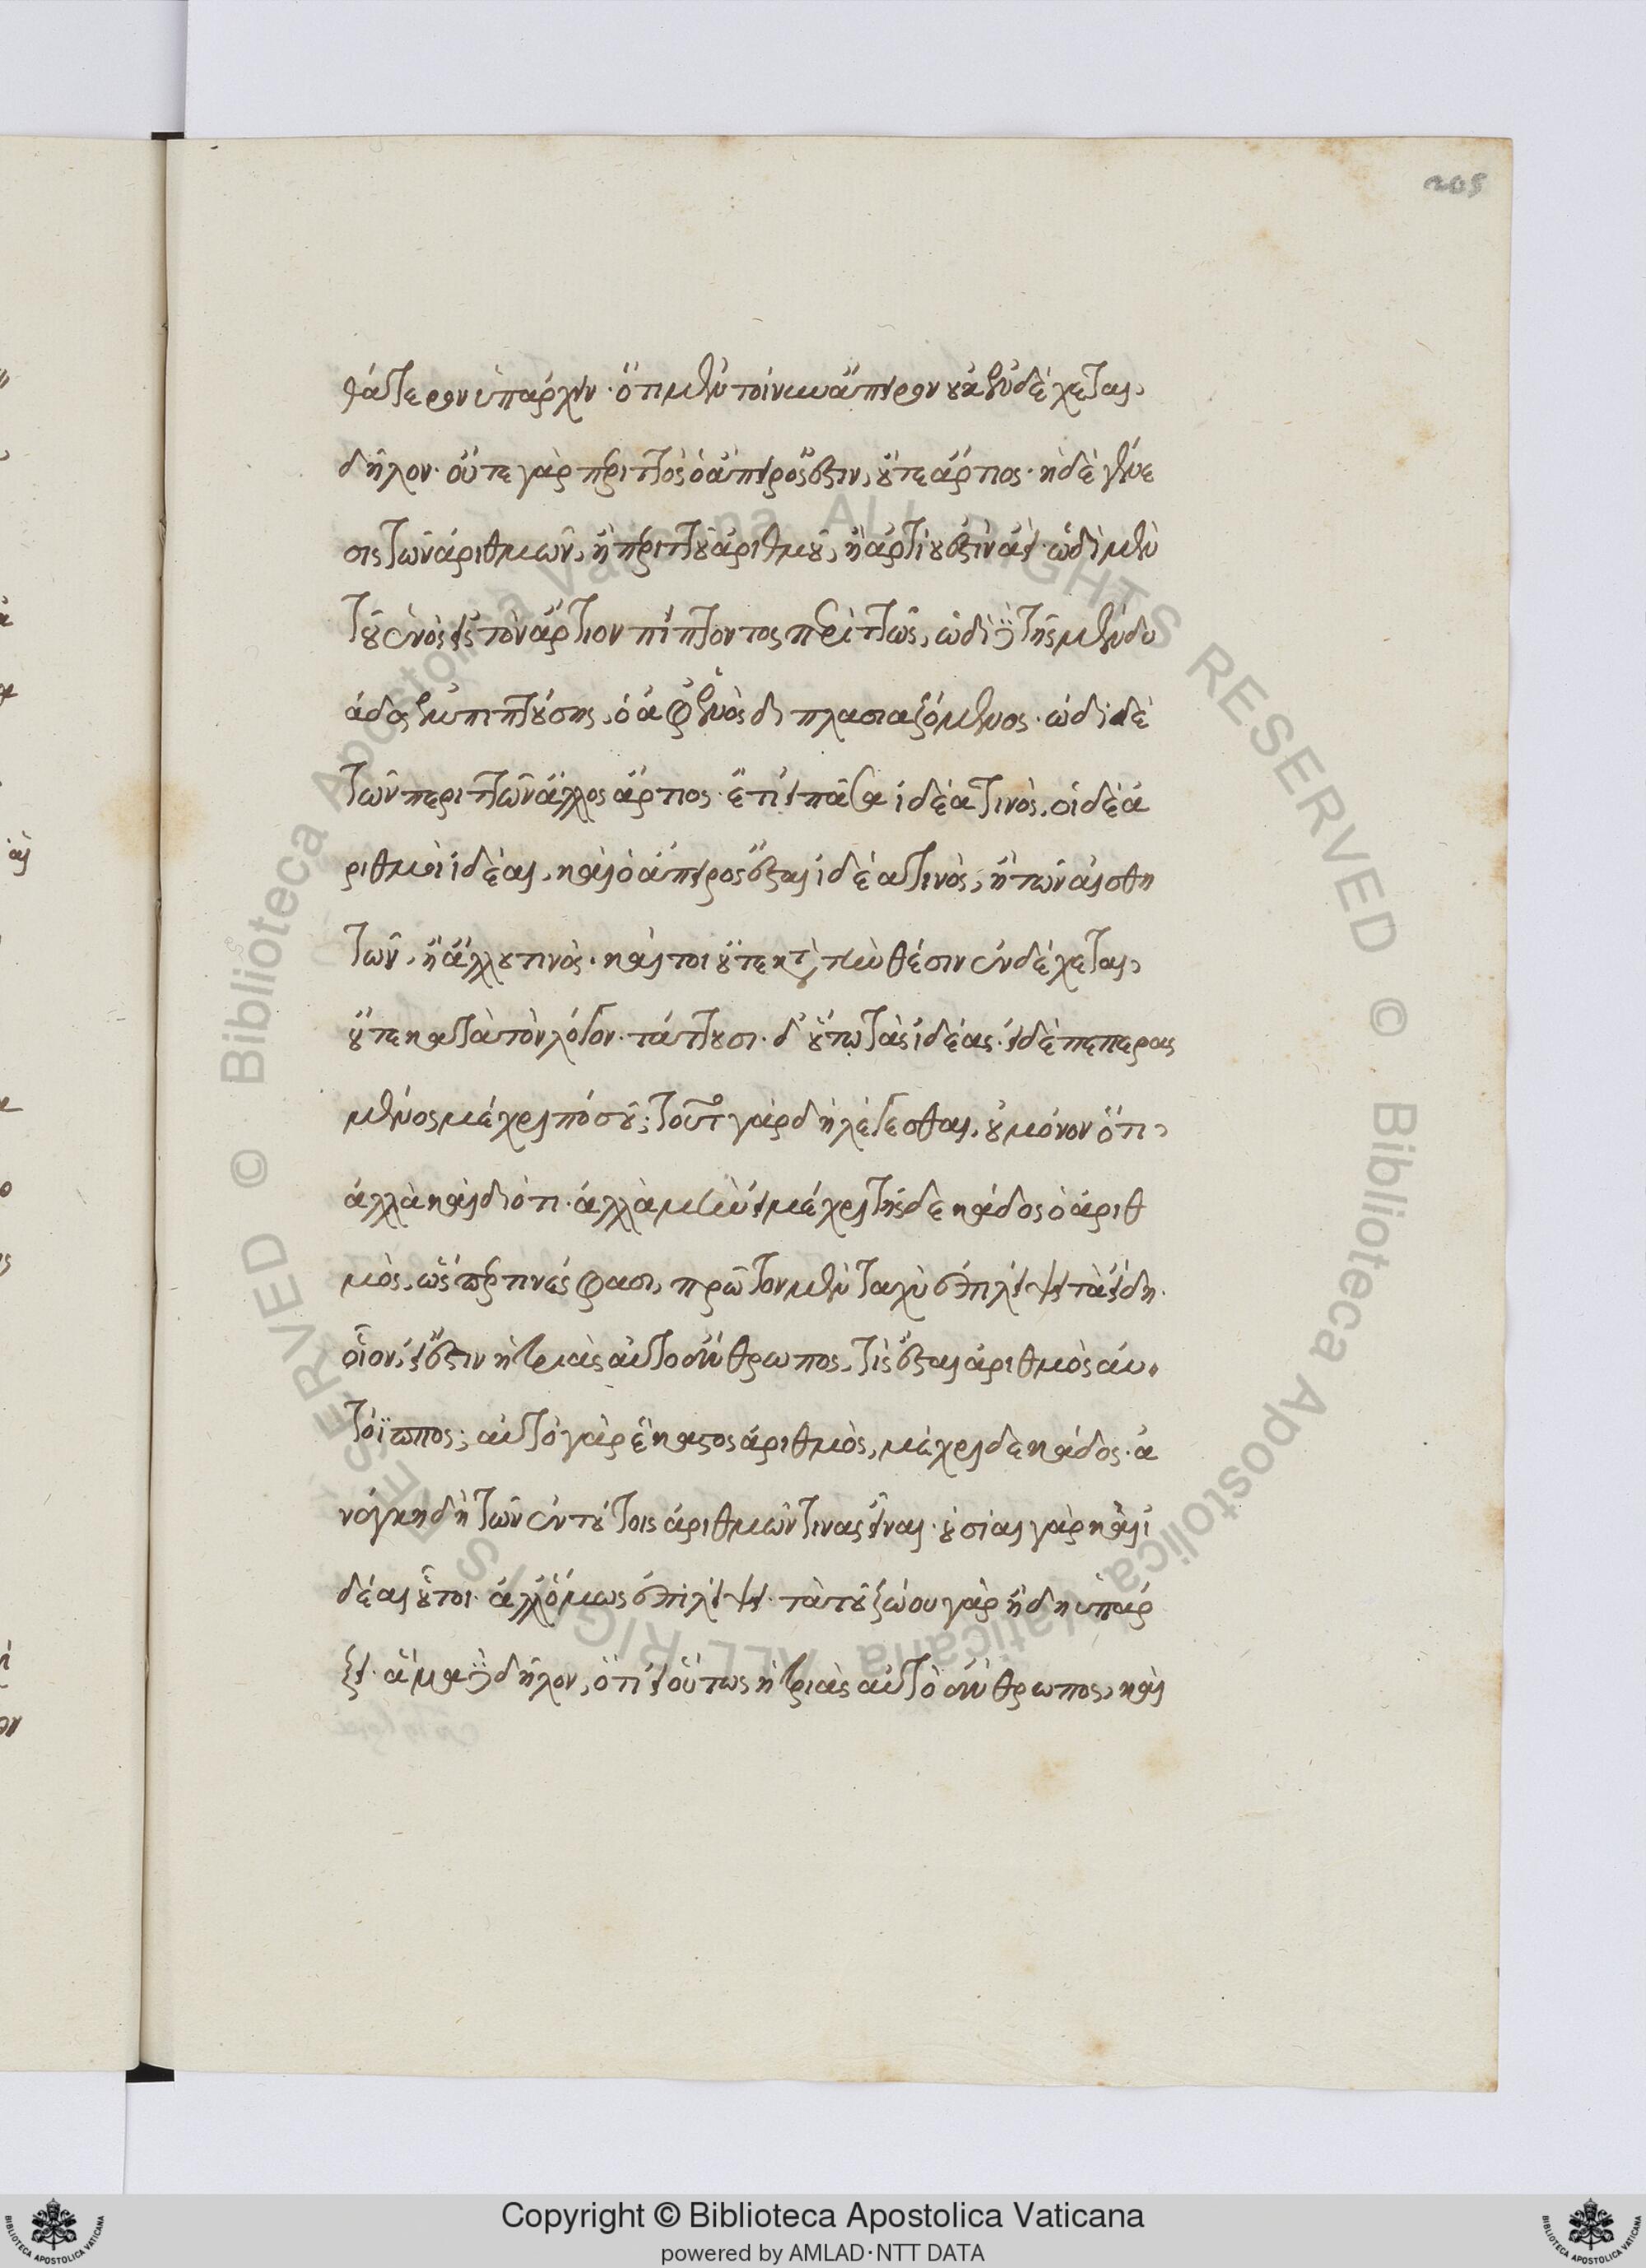 205
θάτερον ὑπάρχειν· ὅτι μὲν τοίνυν ἄπειρον οὐκ ἐνδέχεται,
δῆλον· οὔτε γὰρ περιττὸς ὁ ἄπειρός ἐστιν, οὔτε ἄρτιος· ἡ δὲ γένε
σις τῶν ἀριθμῶν, ἢ περιττοῦ ἀριθμοῦ, ἢ ἀρτίου ἐστὶν ἀεί· ὡδὶ μὲν
τοῦ ἑνὸς εἰς τὸν ἄρτιον πίπτοντος περιττῶς, ὡδὶ δὲ τῆς μὲν δυ
άδος ἐμπιπτούσης, ὁ ἀφ' ἑνὸς διπλασιαζόμενος· ὡδὶ δὲ
τῶν περιττῶν ἄλλος ἄρτιος· ἔτι εἰ πᾶσα ἰδέα τινὸς, οἱ δὲ ἀ
ριθμοὶ ἰδέαι, καὶ ὁ ἄπειρος ἔσται ἰδέα τινὸς, ἢ τῶν αἰσθη
τῶν, ἢ ἄλλου τινὸς· καίτοι οὔτε κατὰ τὴν θέσιν ἐνδέχεται,
οὔτε κατὰ τὸν λόγον· τάττουσι δ' οὕτω τὰς ἰδέας· εἰ δὲ πεπερας
μένος μέχρι πόσου; τοῦτο γὰρ δὴ λέγεσθαι, οὐ μόνον ὅτι,
ἀλλὰ καὶ διότι· ἀλλὰ μὴν εἰ μέχρι τῆς δεκάδος ὁ ἀριθ
μὸς, ὥσπερ τινές φασι, πρῶτον μὲν ταχὺ ἐπιλείψει τὰ εἴδη·
οἷον, εἰ ἔστιν ἡ τριὰς αὐτοάνθρωπος, τίς ἔσται ἀριθμὸς αὐ
τόϊππος; αὐτὸ γὰρ ἕκαστος ἀριθμὸς, μέχρι δεκάδος· ἀ
νάγκη δὴ τῶν ἐν τούτοις ἀριθμῶν τινας εἶναι· οὐσίαι γὰρ καὶ ἰ
δέαι οὗτοι· ἀλλ' ὅμως ἐπιλείψει· τὰ τοῦ ζώου γὰρ ἤδη ὑπάρ
ξει· ἅμα δὲ δῆλον, ὅτι εἰ οὕτως ἡ τριὰς αὐτὸ ἄνθρωπος, καὶ
© Biblioteca Apostolica Vaticana ALL RIGHTS RESERVED © Biblioteca Apostolica Vaticana ALL RIGHTS RESERVED
Copyright © Biblioteca Apostolica Vaticana
powered by AMLAD·NTT DATA